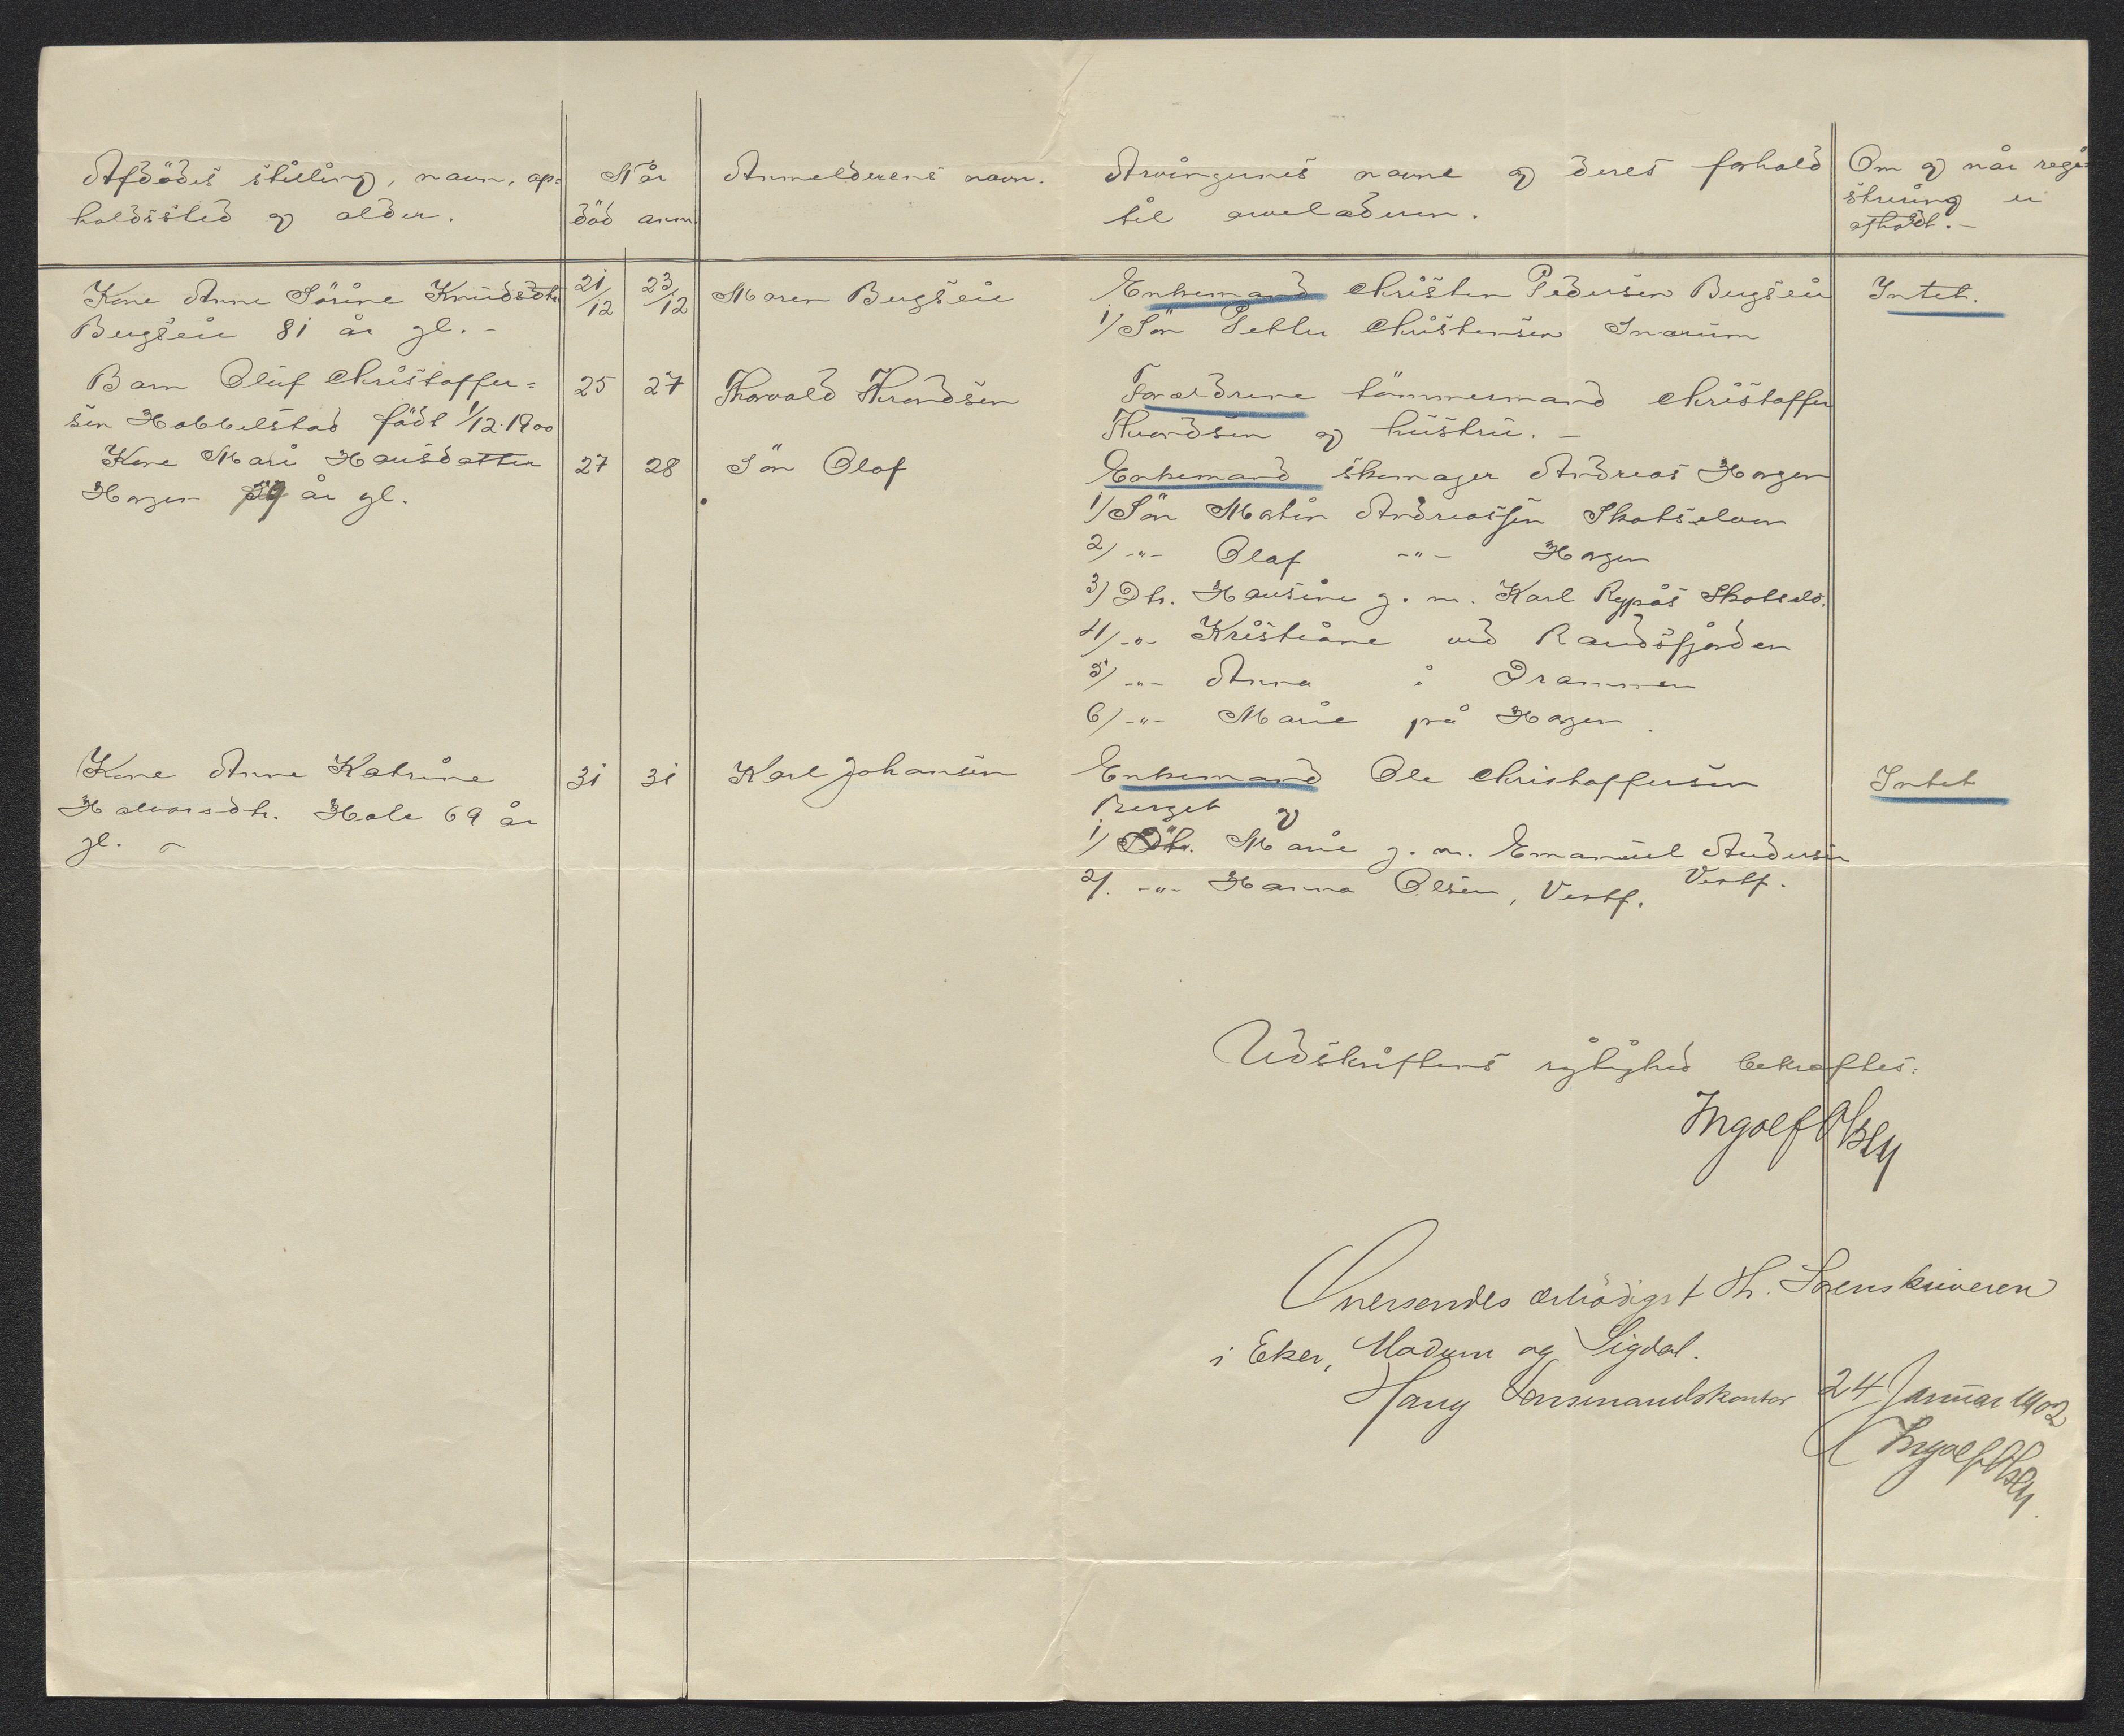 Afdödes stilling, navn, op-
holdssted og alder.
Når
död anm.
Anmelderens navn.
Arvingernes navne og deres forhold
til arveladeren.
Om og når regi-
strering er
afholdt. -
Kone Anne Sörine Knudsdtr
Bugseie 81 år gl. -
21/12
23/12
Maren Bugseie
Enkemand Christen Pedersen Bugseie
1/ Sön Petter Christensen Snarum
Intet.
Barn Oluf Christoffer=
sen Hobbelstad födt 1/12.1900
25
27
Thorvald Throndsen
Forældrene tömmermand Christoffer
Throndsen og hustru. -
Kone Mari Hansdatter
Hagen år gl.
27
28
Sön Olaf
Enkemand skomager Andreas Hagen
1/ Sön Martin Andreassen Skotselven
2/ -"- Olaf -"- Hagen
3/ Dtr. Hansine g. m. Karl Rypås Skotselv.
4/ -"- Kristiane ved Randsfjorden
5/ -"- Anna i Drammen
6/ -"- Marie på Hagen.
Kone Anne Katrine
Halvorsdtr. Hole 69 år
gl. -
31
31
Karl Johansen
Enkemand Ole Christoffersen
Berget og
1/ Dtr. Marie g. m. Emanuel Andersen
Vestf.
2/. -"- Hanna Olsen, Vestf.
Intet
Udskriftens rigtighed bekræftes:
Ingolf Olsen
Oversendes ærbödigst Hr. Sorenskriveren
i Eker, Modum og Sigdal.
Haug Lensmandskontor 24 Januar 1902
Ingolf Olsen